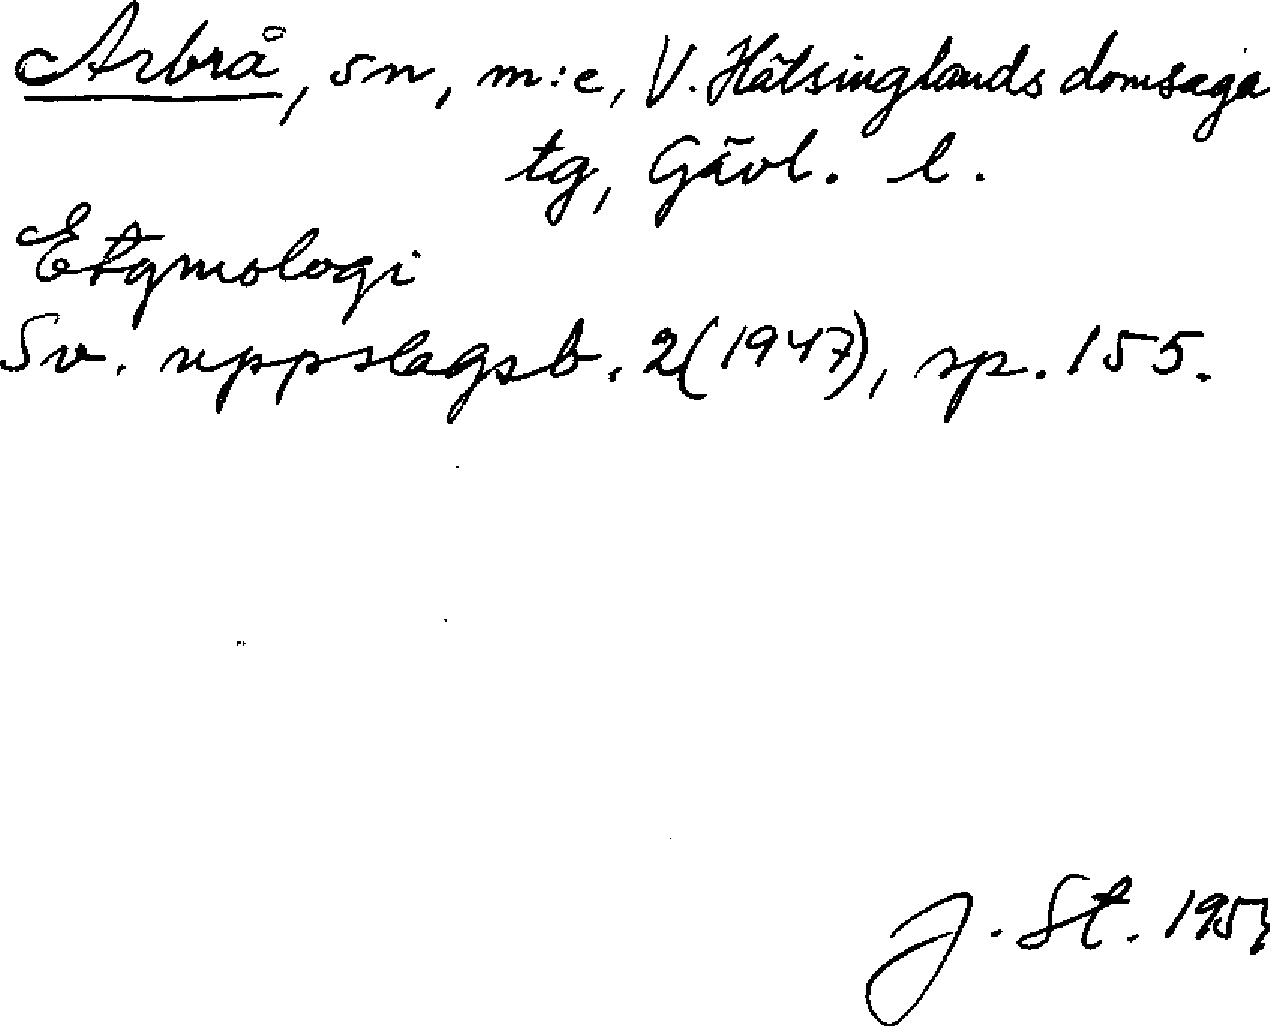 Arbrå, sn, m:e, V. Hälsinglands domsaga
tg, Gävl. l.
Etymologi
Sv. uppslagsb. 2(1947), sp. 155.
J. St.